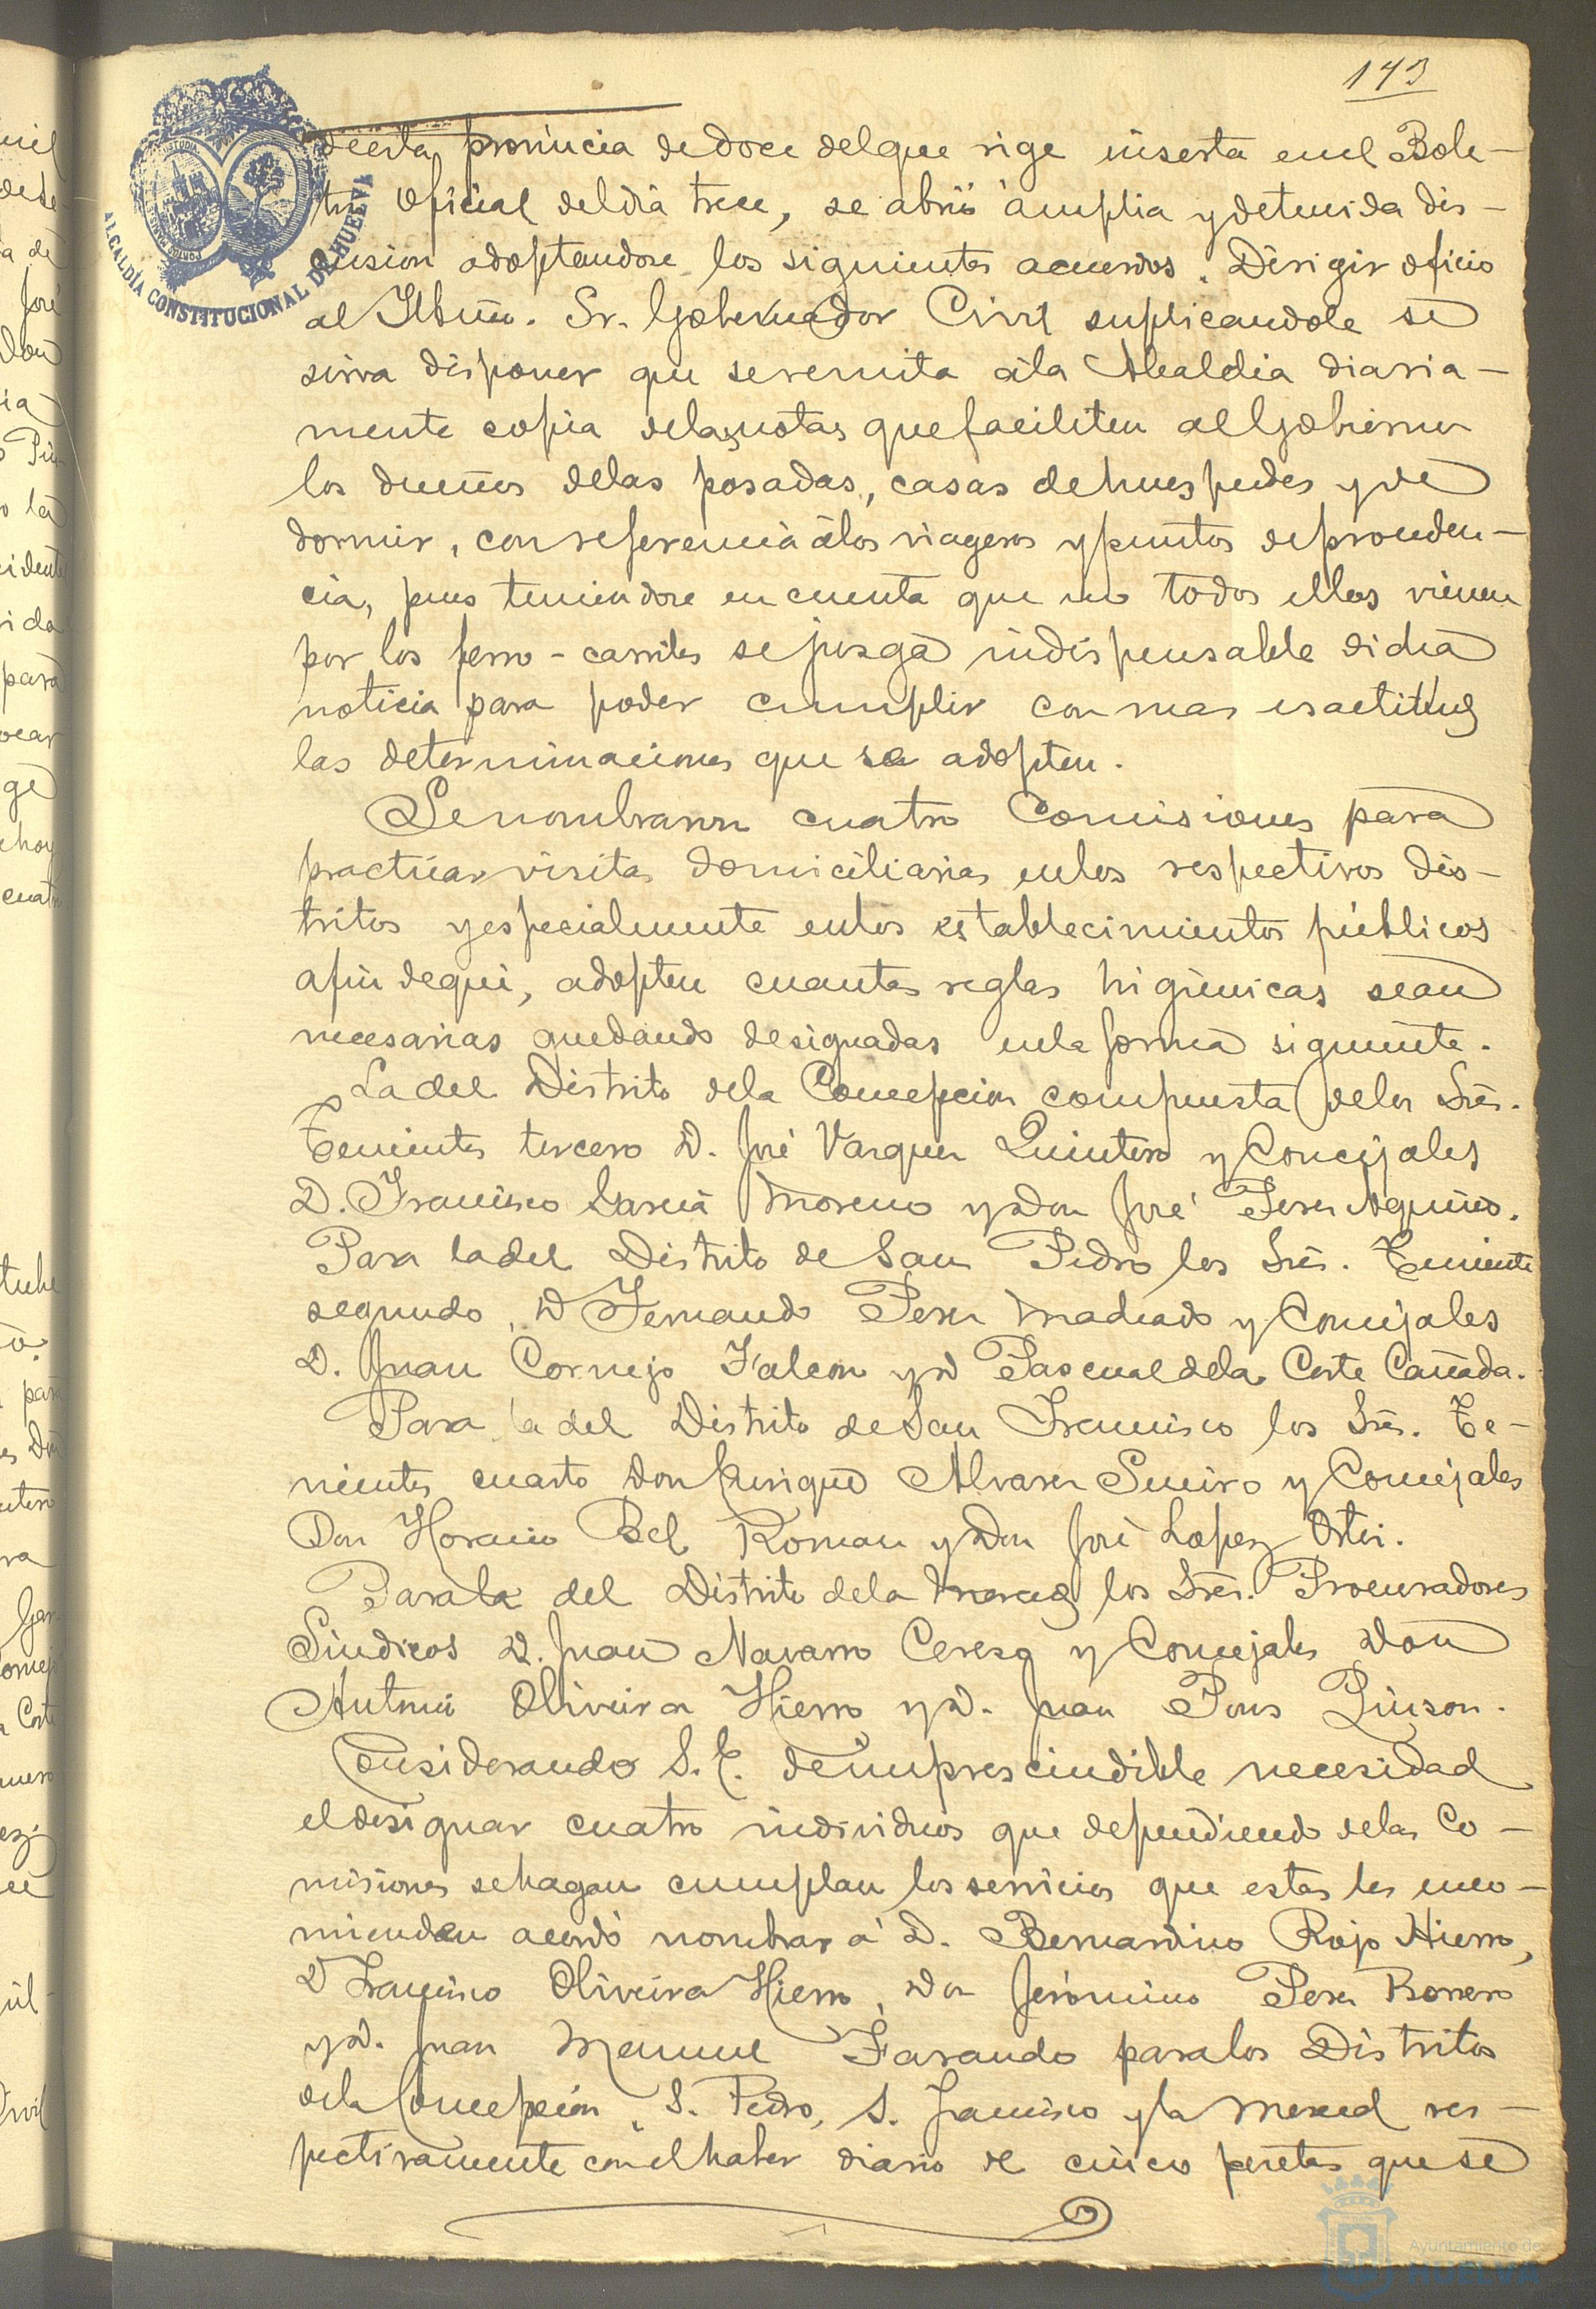 143
ALCALDÍA CONSTITUCIONAL DE HUELVA
de esta provincia de doce del que rige inserta en el Bole-
tin Oficial del dia trece, se abrió ámplia y detenida dis-
cusion adoptandose los siguientes acuerdos. Dirigir oficio
al Iltmo. Sr. Gobernador Civil suplicandole se
sirva disponer que se remita á la Alcaldia diaria-
mente copia de las notas que faciliten al Gobierno
los dueños de las posadas, casas de huespedes y de
dormir, con referencia á los viageros y puntos de proceden-
cia, pues teniendose en cuenta que no todos ellos vienen
por los ferro-carriles se juzga indispensable dicha
noticia para poder cumplir con mas esactitud
las determinaciones que se adopten.
Se nombraron cuatro Comisiones para
practicar visitas domiciliarias en los respectivos dis-
tritos y especialmente en los establecimientos públicos
afin de que, adopten cuantas reglas higiénicas sean
necesarias quedando designadas en la forma siguiente.
La del Distrito de la Concepcion compuesta de los Sres.
Teniente tercero D. José Vazquez Quintero y Concejales
D. Francisco Garcia Moreno y Don José Perez Aquino.
Para la del Distrito de San Pedro los Sres. Teniente
segundo, D Fernando Perez Machado y Concejales
D. Juan Cornejo Falcon y D Pascual de la Corte Cañada.
Para la del Distrito de San Francisco los Sres. Te-
niente cuarto Don Enrique Alvarez Sueiro y Concejales
Don Horacio Bel Roman y Don José Lopez Ortiz.
Para la del Distrito de la Merced los Sres. Procuradores
Síndicos D. Juan Navarro Cereza y Concejales Don
Antonio Oliveira Hierro y D. Juan Pons Pinzon.
Considerando S.E. de imprescindible necesidad
el designar cuatro individuos que dependiendo de las Co-
misiones se hagan cumplan los servicios que estas les enco-
mienden acordó nombrar á D. Bernardino Rojo Hierro,
D Francisco Oliveira Hierro, Don Jerónimo Perez Borrero
y D. Juan Manuel Farando para los Distritos
de la Concepción, S. Pedro, S. Francisco y la Merced res-
pectivamente con el haber diario de cinco pesetas que se
Ayuntamiento de
HUELVA